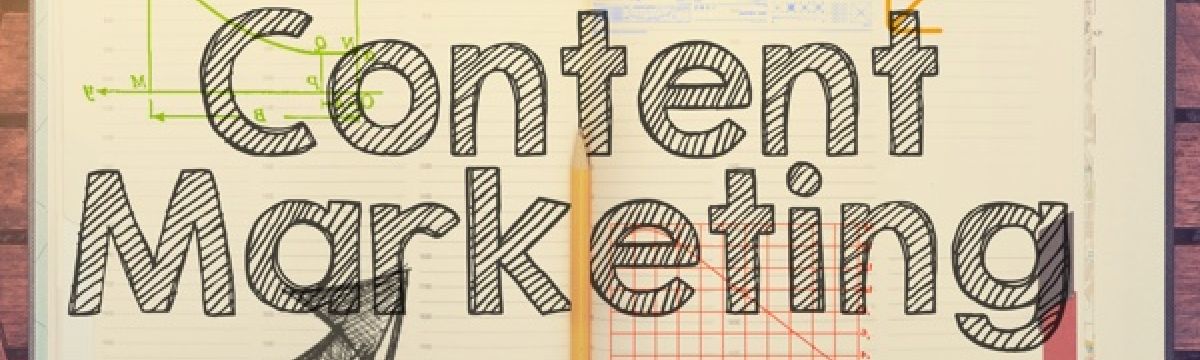 Content
Marketing
y M P Q N
B